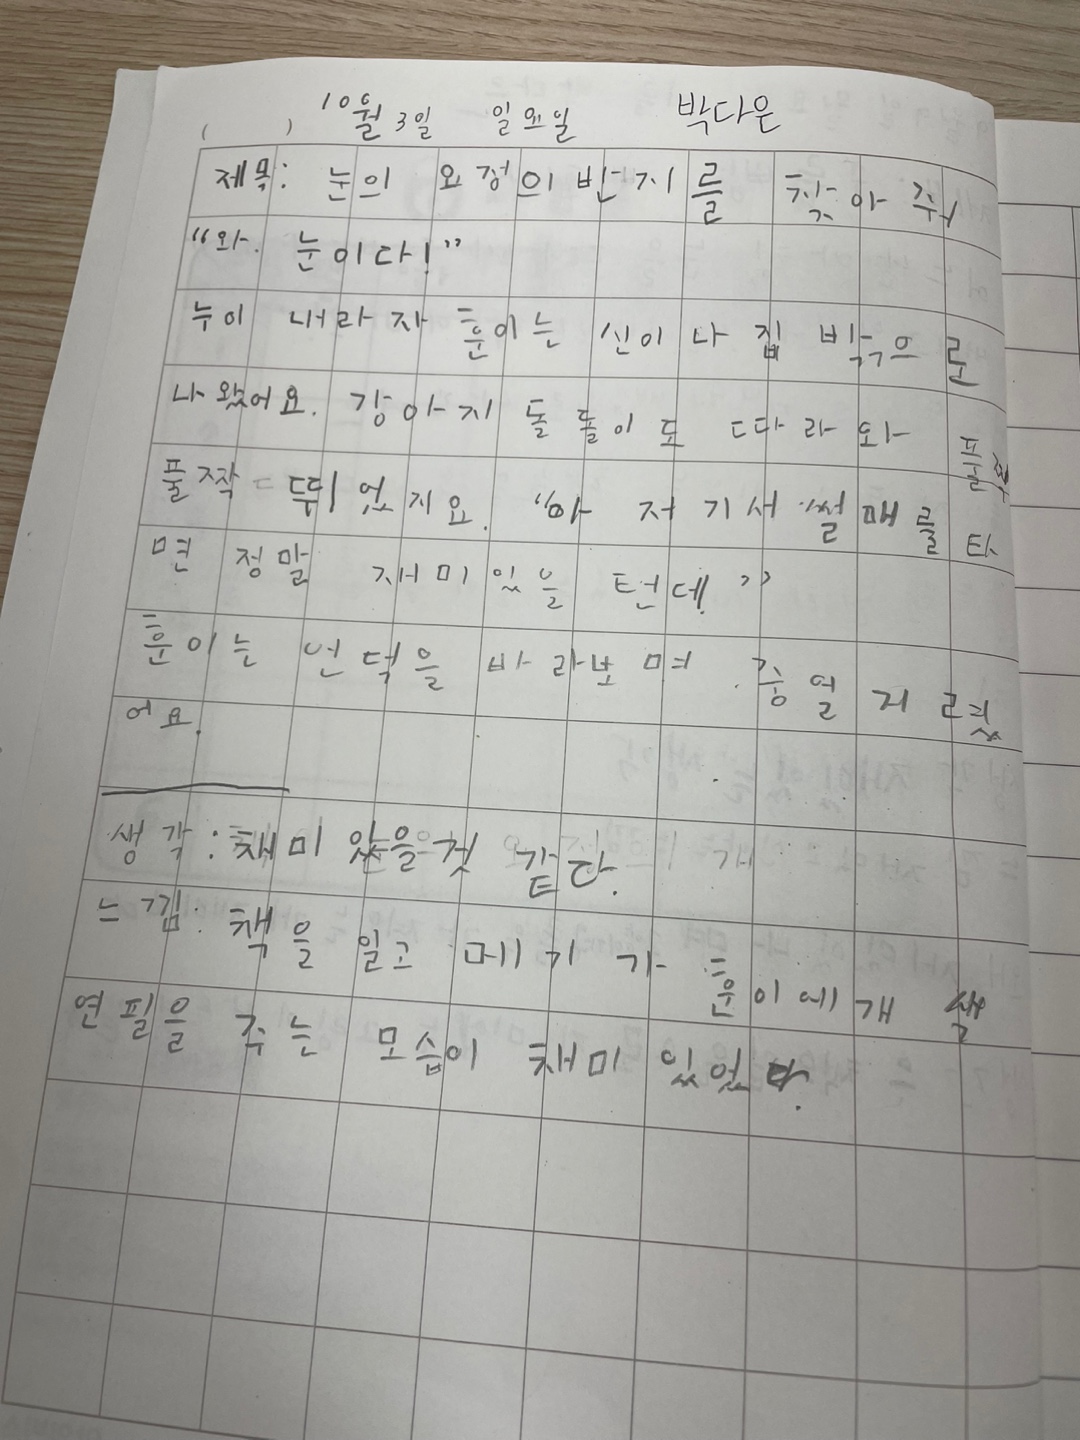 10월 3일 일요일 박다은
제목: 눈의 요정의 반지를 찾아 줘
"와. 눈이다!"
누이 내라자 훈이는 신이 나 집 밖으로
나왔어요. 강아지 돌돌이도 따라와 폴짝
풀짝 뛰었지요. "아 저기서 썰매를 타
면 정말 재미있을 텐데."
훈이는 언덕을 바라보며 중얼거렸
어요.
생각: 재미 있을것 같다.
느낌: 책을 일고 메기가 훈이에개 색
연필을 주는 모습이 재미 있었다.